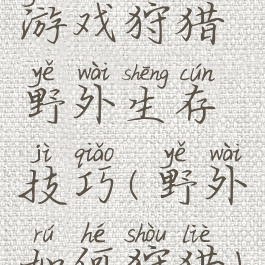 游戏狩猎
yě wài shēng cún
野外生存
jì qiǎo yě wài
技巧(野外
rú hé shòu liè
如何狩猎)